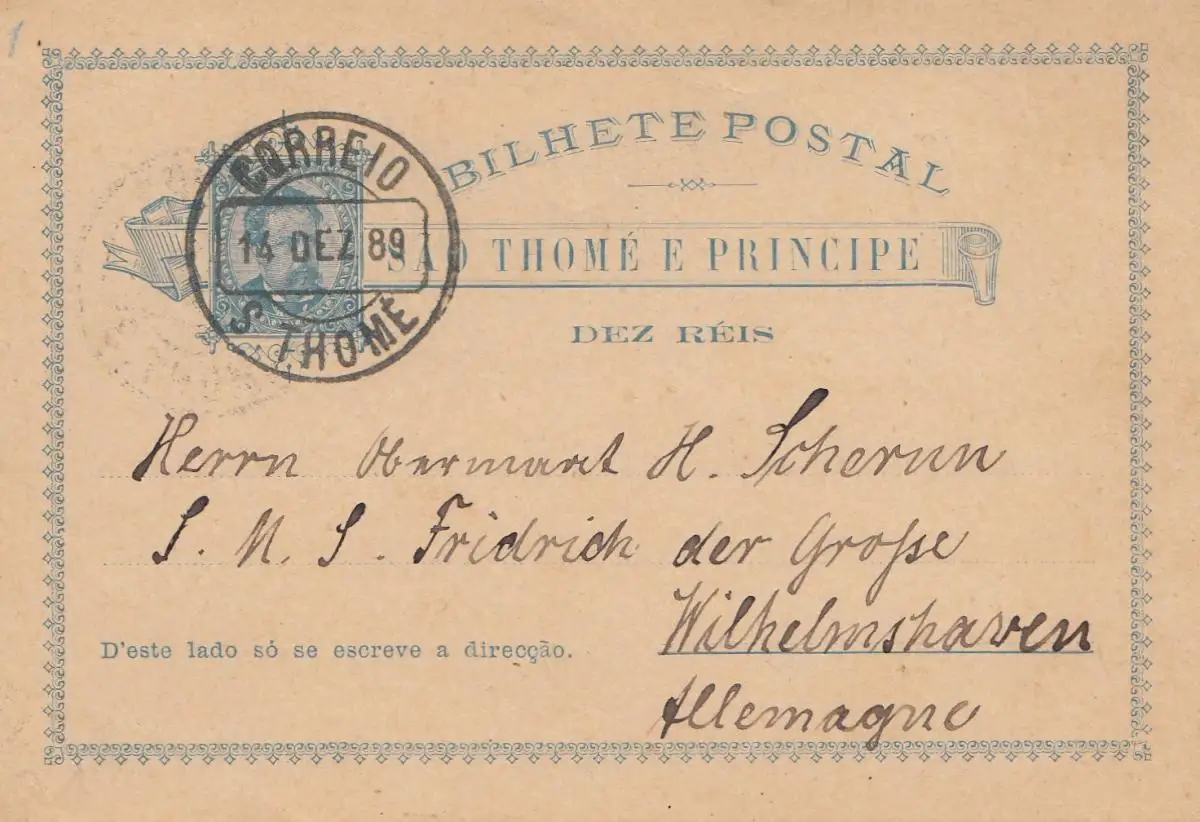 BILHETE POSTAL
CORREIO
14 DEZ 89
S. THOMÉ
SÃO THOMÉ E PRINCIPE
DEZ RÉIS
Herrn Obermaat H. Scherun
S. M. S. Fridrich der Große
Wilhelmshaven
Allemagne
D'este lado só se escreve a direcção.